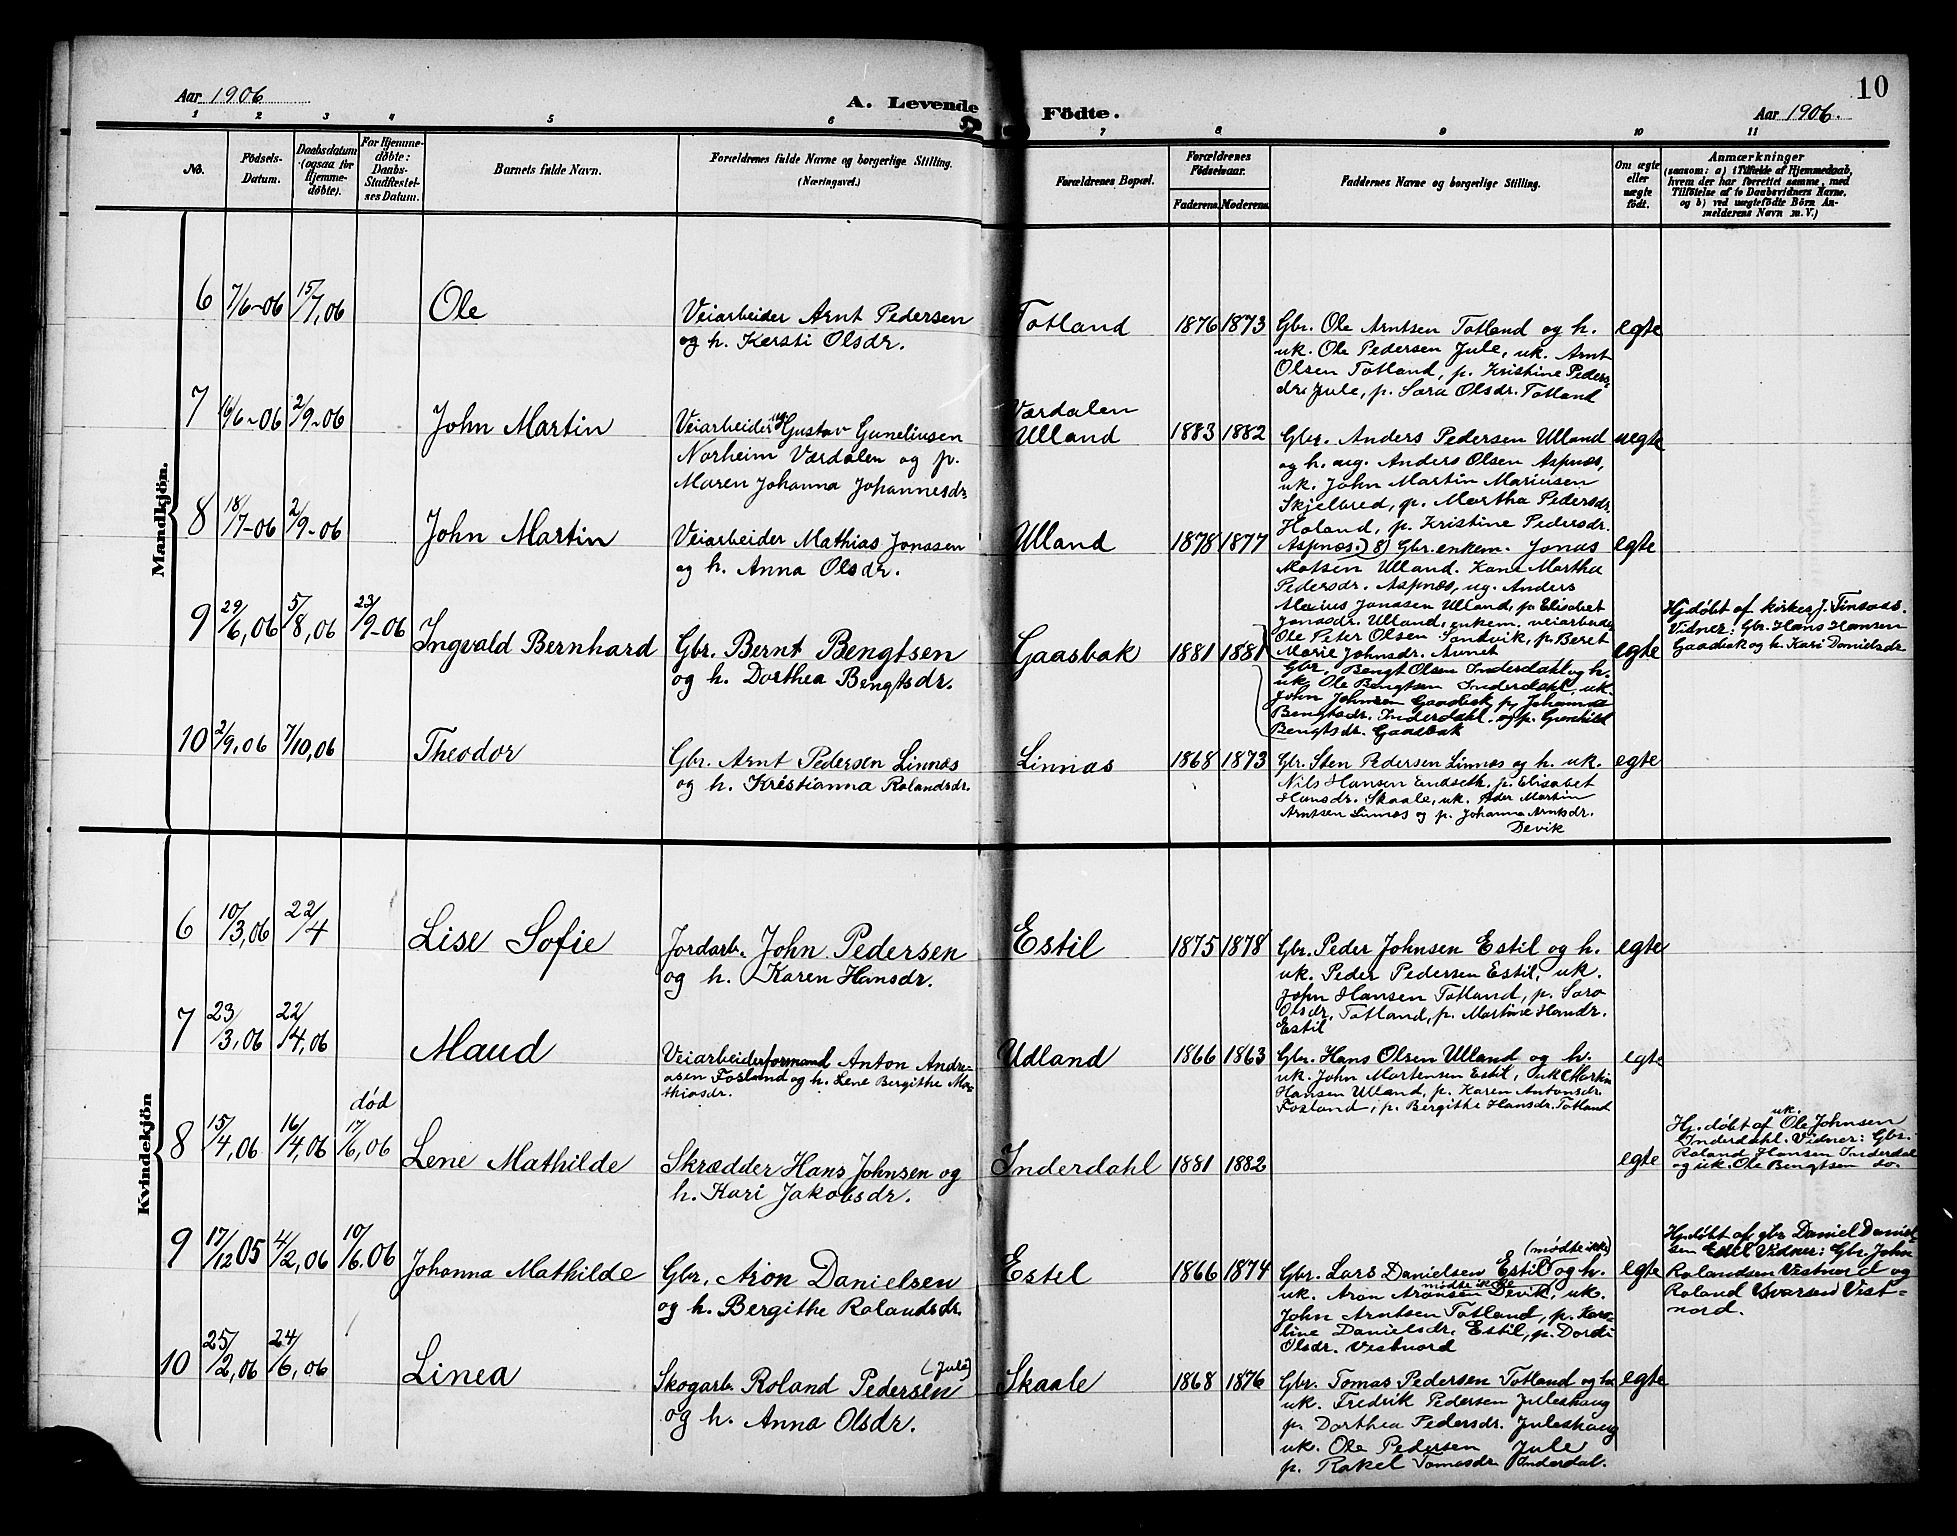 10
Aar 1906
A. Levende Födte.
Aar 1906.
1 2 3 4 5 6 7 8 9 10 11
No.
Födsels-
Datum.
Daabsdatum
(ogsaa for
Hjemme-
döbte).
For Hjemme-
döbte:
Daabs-
Stadfæstel-
ses Datum.
Barnets fulde Navn.
Forældrenes fulde Navne og borgerlige Stilling.
(Næringsvei.)
Forældrenes Bopæl.
Forældrenes
Födselsaar.
Faderens. Moderens.
Faddernes Navne og borgerlige Stilling.
Om ægte
eller
uægte
födt.
Anmærkninger
(saasom: a) i Tilfælde af Hjemmedaab,
hvem der har forrettet samme, med
Tilföielse af to Daabsvidners Navne,
og b) ved uægtefödte Börn An-
melderens Navn m. V.)
Mandkjön.
6 7/6-06 15/7,06 Ole
Veiarbeider Arnt Pedersen
og h. Kersti Olsdr.
Totland 1876 1873
Gbr. Ole Arntsen Totland og h.
uk. Ole Pedersen Jule, uk. Arnt
Olsen Totland, p. Kristine Peders-
dr. Jule, p. Sara Olsdr. Totland
egte
7 16/6-06 2/9-06 John Martin
Veiarbeider ug Gustav Guneliusen
Norheim Værdalen og p.
Maren Johanna Johannesdr
Værdalen
Ulland 1883 1882
Gbr. Anders Pedersen Ulland
og h. ug. Anders Olsen Aspnæs,
uk. John Martin Mariusen
Skjelbred, p. Martha Pedersdr.
Holand, p. Kristine Pedersdr.
Aspnæs.)
uegte
8 18/7-06 2/9-06 John Martin
Veiarbeider Mathias Jonasen
og h. Anna Olsdr.
Ulland 1878 1877
8) Gbr. enkem. Jonas
Matsen Ulland. Kone Martha
Pedersdr. Aspnæs, ug. Anders
Marius Jonasen Ulland, p Elisabet
Jonasdr. Ulland, enkem. veiarbeider
Ole Peter Olsen Sandvik, p. Beret
Marie Johnsdr. Aunet
egte
9 29/6,06 5/8,06 23/9-06 Ingvald Bernhard
Gbr. Bernt Bengtsen
og h. Dorthea Bengtsdr.
Gaasbak 1881 1881
Gbr. Bengt Olsen Inderdahl og h.
uk. Ole Bengtsen Inderdahl, uk.
John Johnsen Gaasbak p, Johanna
Bengtsdr. Inderdahl. og p. Gunhild
Bengtsdr. Gaasbak
egte
Hj. döbt af kirkesj. Tinsaas.
Vidner: Gbr. Hans Hansen
Gaasbak og h. Kari Danielsdr
10 2/9,06 7/10,06 Theodor
Gbr. Arnt Pedersen Linnæs
og h. Kristianna Rolandsdr.
Linnæs 1868 1873
Gbr. Sten Pedersen Linnæs og h. uk.
Nils Hansen Endseth. p. Elisabet
Hansdr. Skaale, uk. Peder Martin
Arntsen Linnæs og p. Johanna Arntsdr.
Devik
egte
Kvindekjön
6 10/3,06 22/4 Lise Sofie
Jordarb. John Pedersen
og h. Karen Hansdr.
Estil 1875 1878
Gbr. Peder Johnsen Estil og h.
uk. Peder Pedersen Estil, uk.
John Hansen Totland, p. Sara
Olsdr. Totland, p. Martine Hansdr.
Estil
egte
7 23/3,06 22/4,06 Maud
Veiarbeiderformand Anton Andre-
asen Fosland og h. Lene Bergithe Ma-
thiasdr.
Udland 1866 1863
Gbr. Hans Olsen Ulland og h.
uk. John Mortensen Estil, uk Martin
Hansen Ulland, p. Karen Antonsdr.
Fosland, p. Bergithe Hansdr. Totland
egte
8 15/4,06 16/4,06 död 17/6,06 Lene Mathilde
Skrædder Hans Johnsen og
h. Kari Jakobsdr.
Inderdahl 1881 1882
egte
Hj. döbt af uk. Ole Johnsen
Inderdahl. Vidner: Gbr.
Roland Hansen Inderdal
og uk. Ole Bengtsen do.
9 17/12 05 4/2,06 10/6.06 Johanna Mathilde
Gbr. Aron Danielsen
og h. Bergithe Rolandsdr.
Estel 1866 1874
(mödte ikke)
Gbr. Lars Danielsen Estil og h.
mödte ikke
uk. Aron Aronsen Devik, uk.
John Arntsen Totland, p. Karo-
line Danielsdr. Estil, p. Dordi
Olsdr. Vestnord
egte
Hj. döbt af gbr Daniel Daniel-
sen Estil Vidner: Gbr. John
Rolandsen Vestnord og
Roland Ivarsen Vest-
nord.
10 25/2,06 24/6,06 Linea
(Jule)
Skogarb. Roland Pedersen
og h. Anna Olsdr.
Skaale 1868 1876
Gbr. Tomas Pedersen Totland og h.
uk. Fredrik Pedersen Juleshaug
p. Dorthea Pedersdr. Juleshaug
uk. Ole Pedersen Jule
p. Rakel Tomasdr Inderdal.
egte